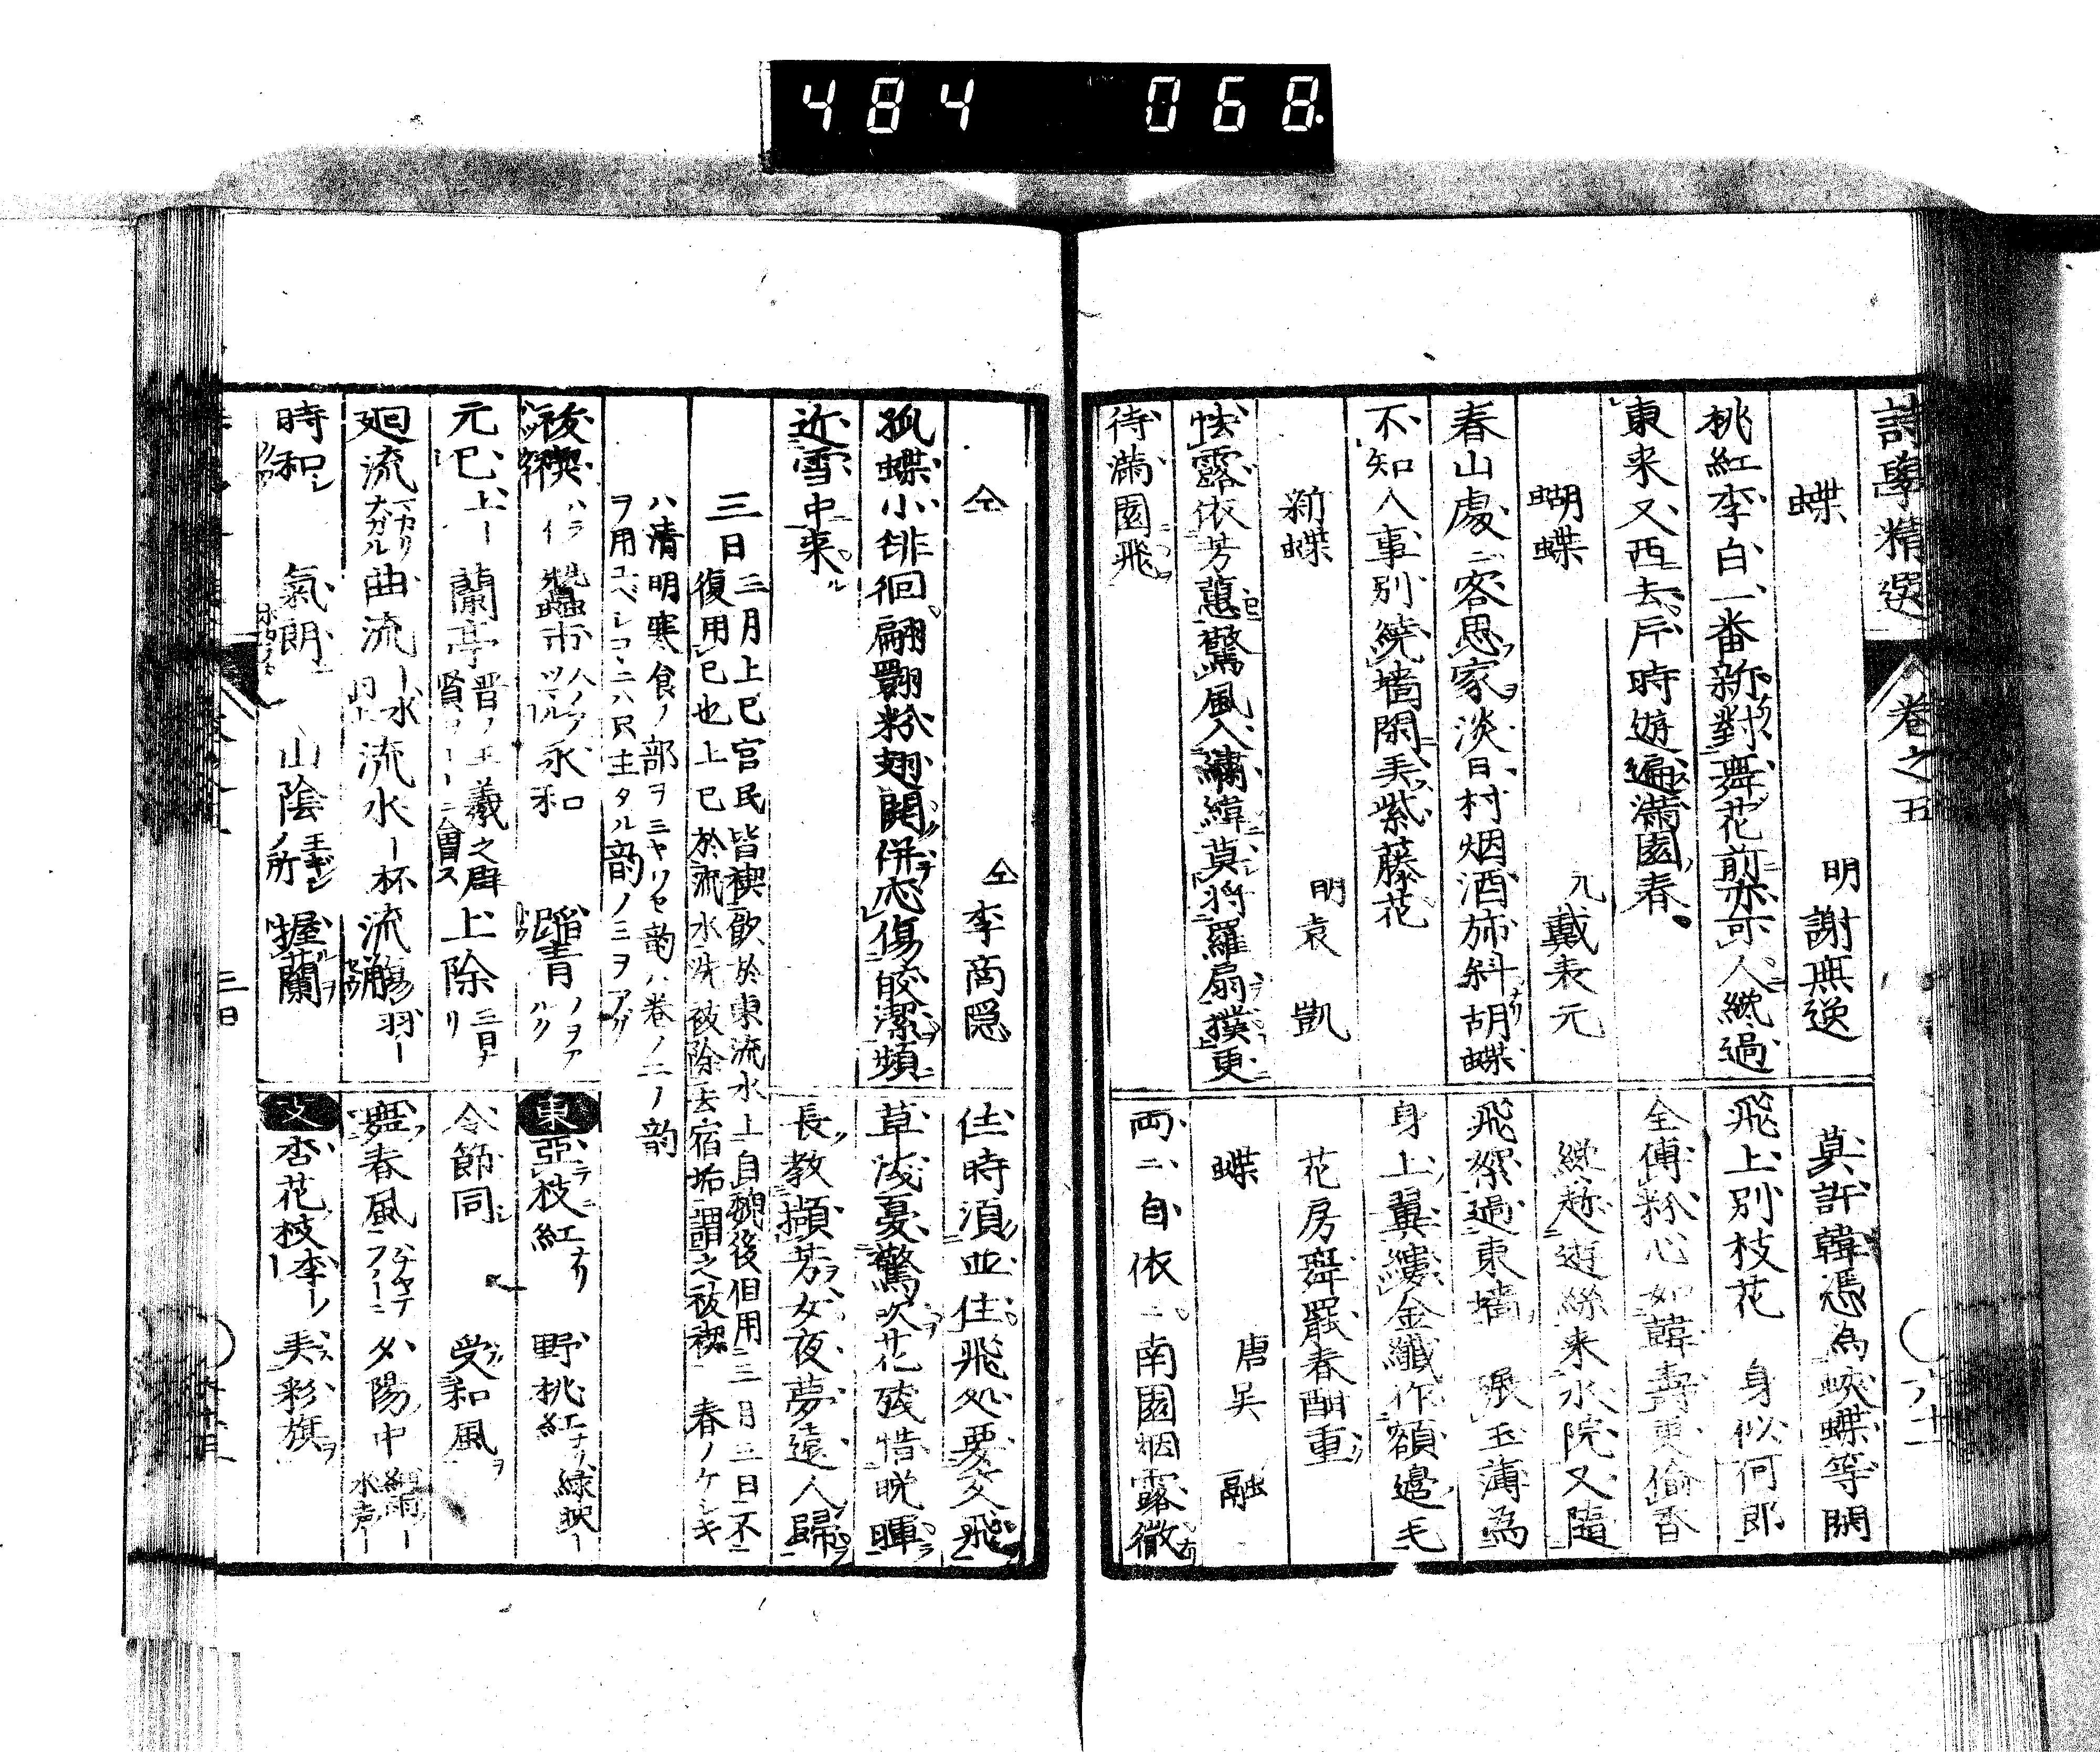 484 068.
詩學精選 卷之五
蝶 明 謝無逸
桃紅李白一番新對舞花前亦可人纔過
東来又西去片時遊遍滿園春
蝴蝶 元 戴表元
春山處二客思家淡日村烟酒斾斜胡蝶
不知人事別繞墻閑弄紫藤花
新蝶 明 袁凱
怯露依芳蕙驚風入繡幃莫將羅扇撲更
待滿園飛
莫許韓憑為蛺蝶等閑
飛上別枝花 身似何郎
全傅粉心如韓壽更偷香
纔趂遊絲来水院又隨
飛絮過東墻 碾玉薄為
身上翼縷金纖作額邊毛
花房舞罷春酣重
蝶 唐 吴融
両二自依二南園烟露微
仝 仝 李商隱
孤蝶小徘徊翩翾粉翅開併應傷皎潔頻
近雪中来
住時須並住飛処要交飛
草浅憂驚吹花殘惜晩暉
長教擷芳女夜夢遠人歸
三日 三月上巳官民皆禊飲於東流水上自魏後但用三月三日不
復用巳也上巳於流水洗祓除去宿垢謂之祓禊 春ノケシキ
ハ清明寒食ノ部ヲミヤリセ韵ハ卷ノ二ノ韵
ヲ用ユベシコヽニハ只主タル韵ノミヲアグ
祓禊 ハライ 蠶市 永和 踏青
元巳 上ー 蘭亭 晋ノ王羲之群賢ヲーー二會ス 上除 三日ナリ
廻流 曲流 ー水 流水 ー杯 流觴 羽ー
時和 氣朗 山陰 王ギシノ所 握蘭
東 亞枝紅 野桃紅 緑映ー
令節同 受和風
舞春風 夕陽中 細雨ー 水声ー
文 杏花枝 李ーノ 弄彩旗
三日